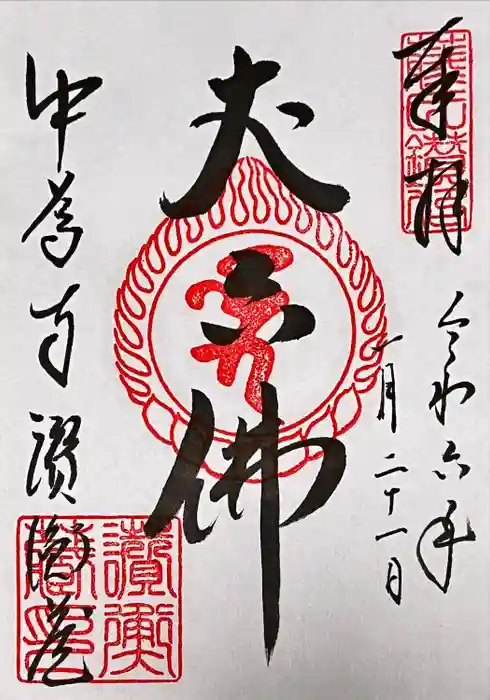 奉拝
令和六年
一月二十一日
丈六佛
中尊寺讃衡蔵
讃衡
蔵印